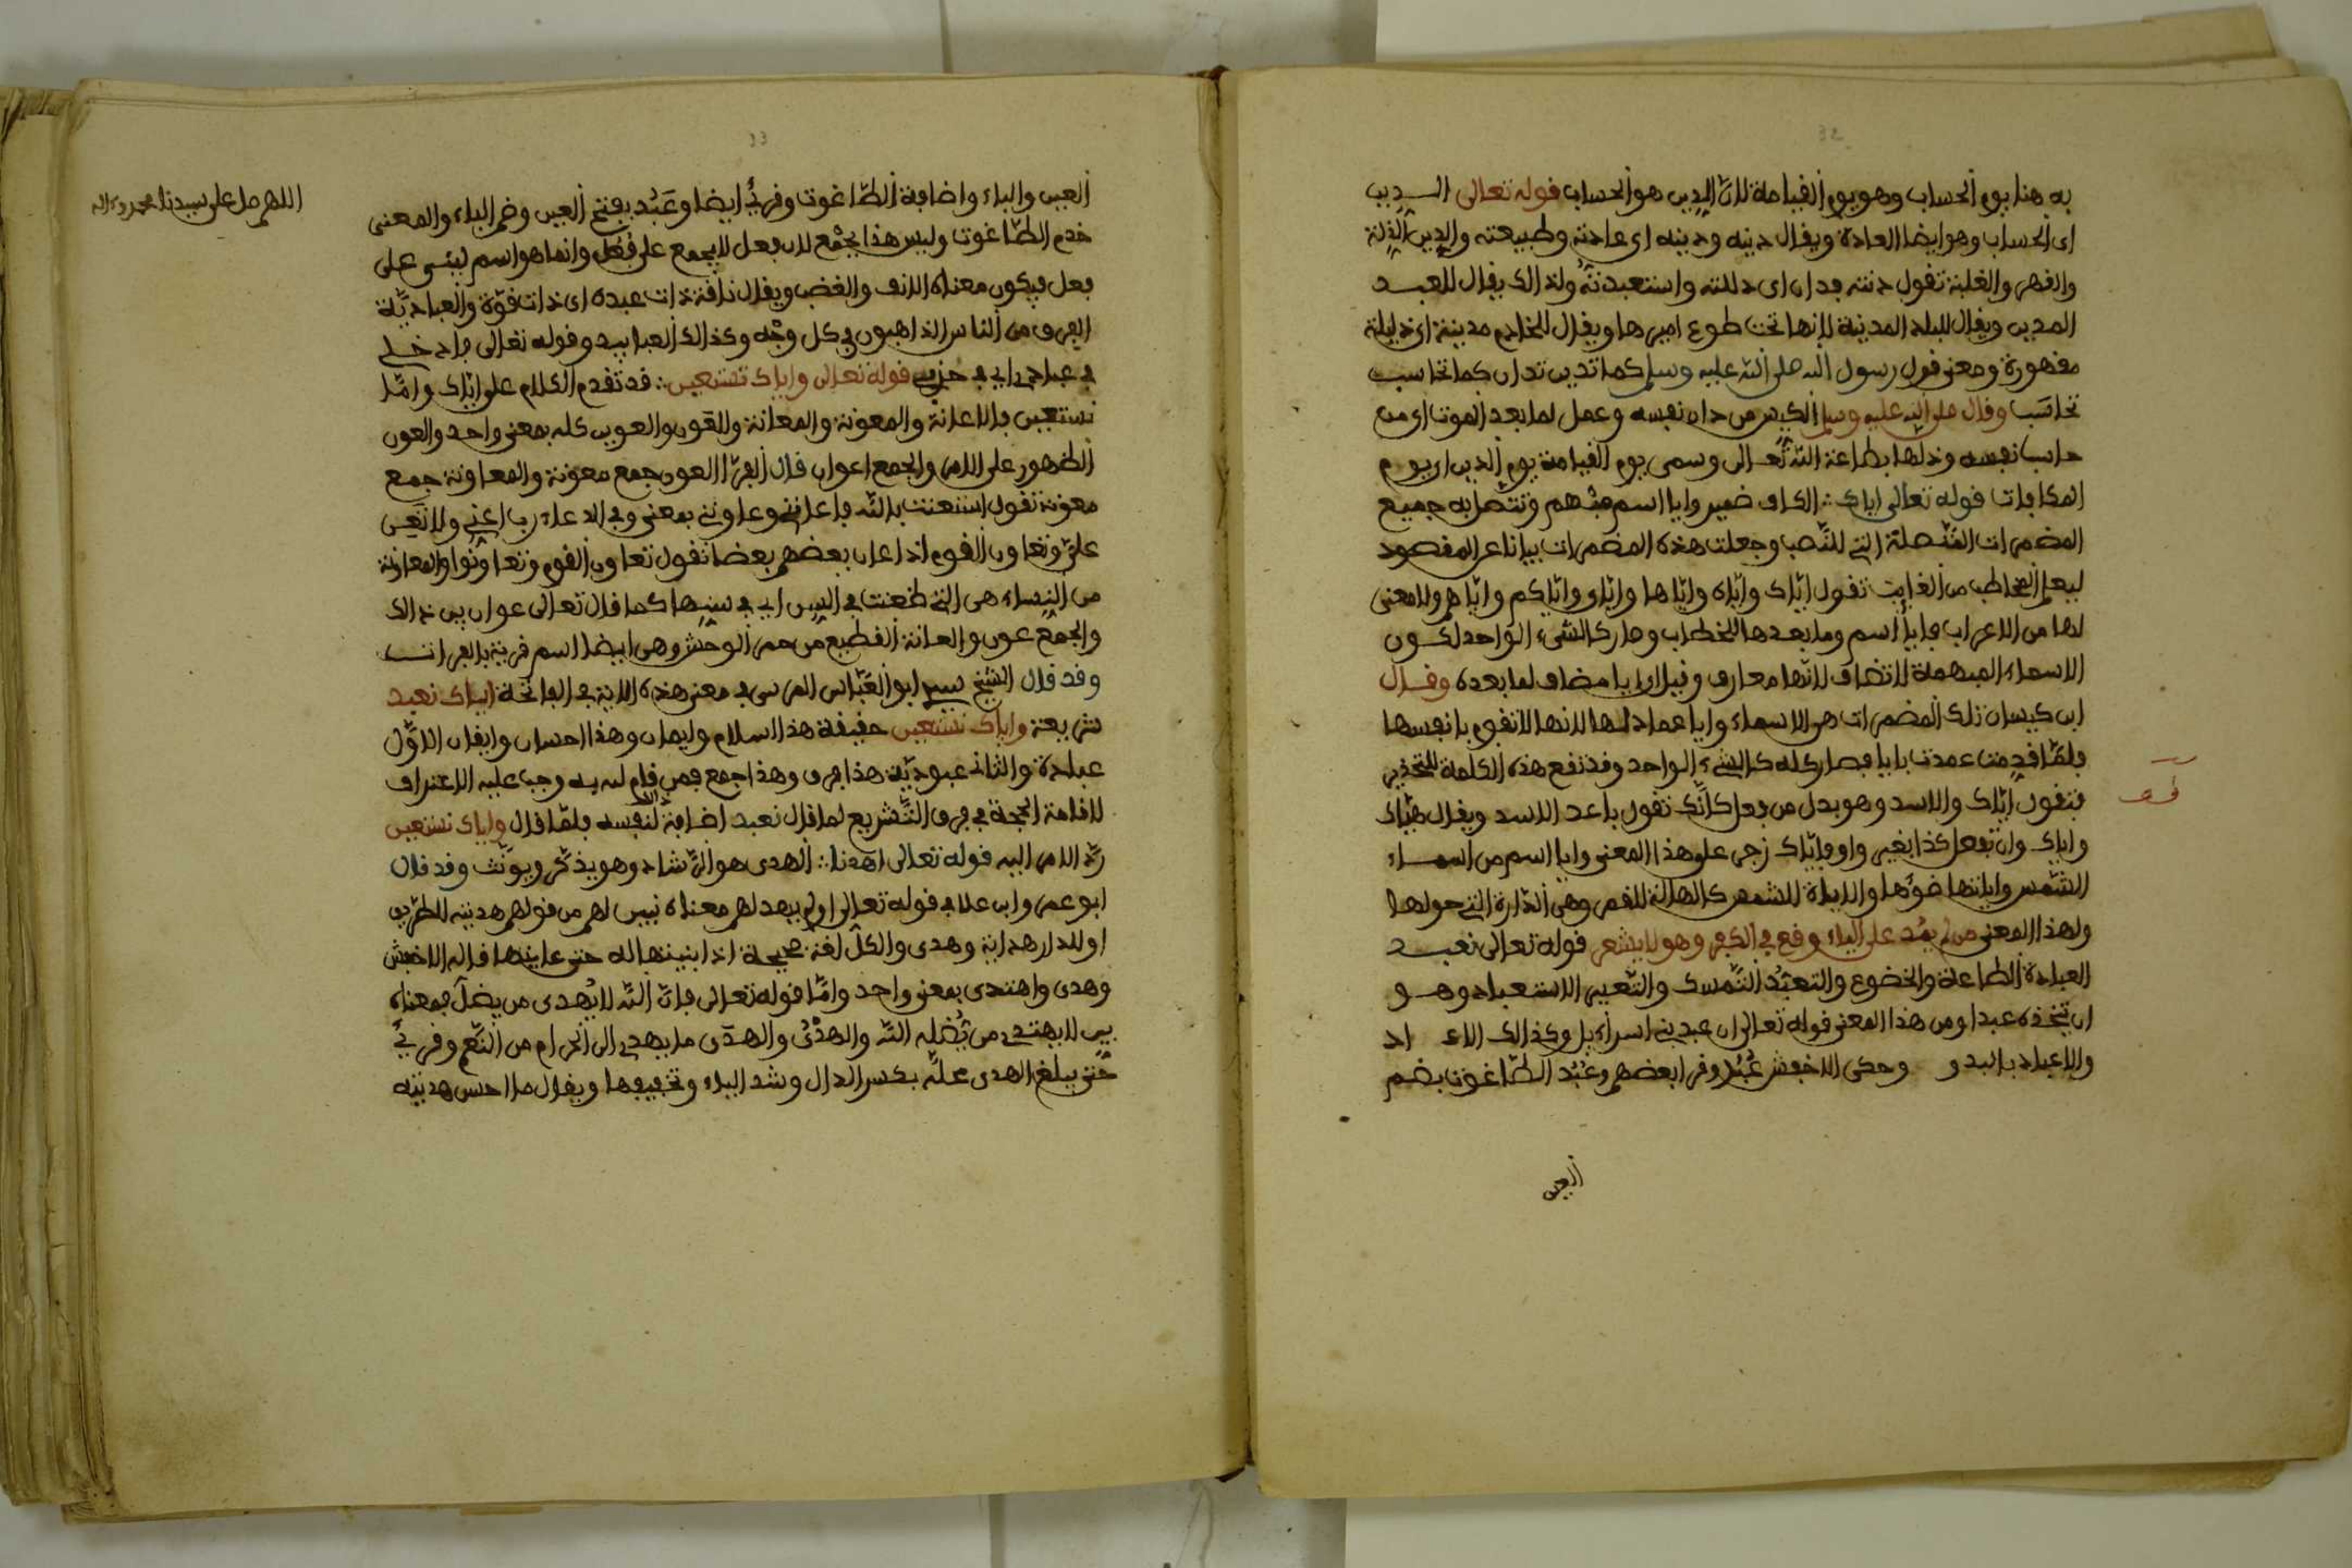 32
به هنا يوم الحساب وهو يوم القيامة لان الدين هو الحساب قوله تعالى الدين
اى الحساب وهو ايضا العادة ويقال دينه ودينه اى عادته وطبيعته والدين الذلة
والقهر والغلبة تقول دنته فدان اى ذللته واستعبدتّه ولذالك يقال للعبد
المدين ويقال للبلد المدينة لانها تحت طوع اميرها ويقال للخادم مدينة اى ذليلة
مقهورة ومعنى قول رسول الله صلى الله عليه وسلم كما تدين تدان كما تحاسب
تحاسَب وقال صلى الله عليه وسلم الكيس من دان نفسه وعمل لما بعد الموت اى من
حاسب نفسه وذلها بطاعة الله تعالى وسمى يوم القيامة يوم الدين اى يوم
المكافات قوله تعالى اياك ∴ الكاف ضمير وايا اسم مبهم وتتصل به جميع
المضمرات المتصلة التي للنّصب وجعلت هذه المضمرات بيانا عن المقصود
ليعلم المخاطب من الغايب تقول ايّاك وايّاه وايّاها وايّاى وايّاكم وايّاهم ولا معنى
لها من الاعراب فايا اسم وما بعدها للخطاب وصار كالشىء الواحد لكون
الاسماء المبهمة لا تضاف لانها معارف وقيل ان ايا مضاف لما بعده وقال
ابن كيسان تلك المضمرات هى الاسماء وايا عماد لها لانها لا تقوم بانفسها
فلمّا قدمت عمدت بايا فصار كله كالشىء الواحد وقد تقع هذه الكلمة للتحذير
فتقول ايّاك والاسد وهو بدل من فعل كانّك تقول باعد الاسد ويقال هيّاك
واياك وان تفعل كذا بغير واو فايّاك زجى على هذا المعنى وايا اسم من اسماء
الشمس واياتها ضوءها والاياة للشمس كالهالة للقمر وهى الدّارة التي حولها
ولهذا المعنى من لم يشد على الياء وقع في الكفر وهو لا يشعر قوله تعالى نعبد
العبادة الطاعة والخضوع والتعبّد التنسك والتعبير الاستعباد وهو
ان تتخذه عبدا ومن هذا المعنى قوله تعالى ان عبدت بني اسرآءيل وكذالك الاعـ اد
والاعباد باليد و وحكى الاخفش عُبُد وقرا بعضهم وعُبُد الطّاغوت بضم
العين
33
العين والباء واضافة الطّاغوت وقرئ ايضا وعَبُد بفتح العين وضم الباء والمعنى
خدم الطّاغوت وليس هذا بجمع لان فعل لا يجمع على فُعُل وانما هو اسم ليبنى على
فعل فيكون معناه الانف والغضب ويقال ناقة ذات عبدة اى ذات قوّة والعباديّة
الفرق من الناس الذاهبون في كل وجْه وكذالك العبابيد وقوله تعالى فادخلي
في عبادي اى في حزبي قوله تعالى واياك نستعين ∴ قد تقدم الكلام على ايّاك وامّا
نستعين فالاعانة والمعونة والمعانة والعون والعوين كله بمعنى واحد والعون
الظهور على الامر والجمع اعوان قال الفرّا العون جمع معونة والمعاونة جمع
معونة تقول استعنت بالله فاعانني وعاونني بمعنى وفي الدعاء رب اعني ولا تعن
عليّ وتعاون القوم اذا اعان بعضهم بعضا تقول تعاون القوم وتعاونوا والعوان
من النساء هى التي طعنت في السن اى في سنها كما قال تعالى عوان بين ذالك
والجمع عون والعانة القطيع من حمر الوحش وهى ايضا اسم قرية بالفرات
وقد قال الشيخ سيدى ابو العبّاس المرسى في معنى هذه الاية في الفاتحة اياك نعبد
شريعة واياك نستعين حقيقة هذا اسلام وايمان وهذا احسان وايقان الاوّل
عبادة والثاني عبوديّة هذا فرق وهذا جمع فمن قام لله به وجب عليه الاعتراف
لاقامة الحجة في فرق التّشريع لما قال نعبد اضافة لنفسه فلمّا قال واياك نستعين
ردّ الامر اليه قوله تعالى اهدنا ∴ الهدى هو الرّشاد وهو يذكّر ويونّث وقد قال
ابو عمر وابن علا في قوله تعالى اولم يهد لهم معناه نبيّن لهم من قولهم هديته الطريق
او للدار هداية وهدى والكل لغة صحيحة اذا ابنيتها له حتى عاينها قاله الاخفش
وهدى واهتدى بمعنى واحد وامّا قوله تعالى فانّ الله لا يُهدى من يضل فمعناه
ليس لا يهتدى من يُضله الله والهدْىُ والهدّى ما يهدى الى الحرام من النّعم وقرئ
حتى يبلغ الهدى محلّه بكسر الدال وشد الياء وتخفيفها ويقال ما احسن هديته
اللهم صل على سيدنا محمد وءاله